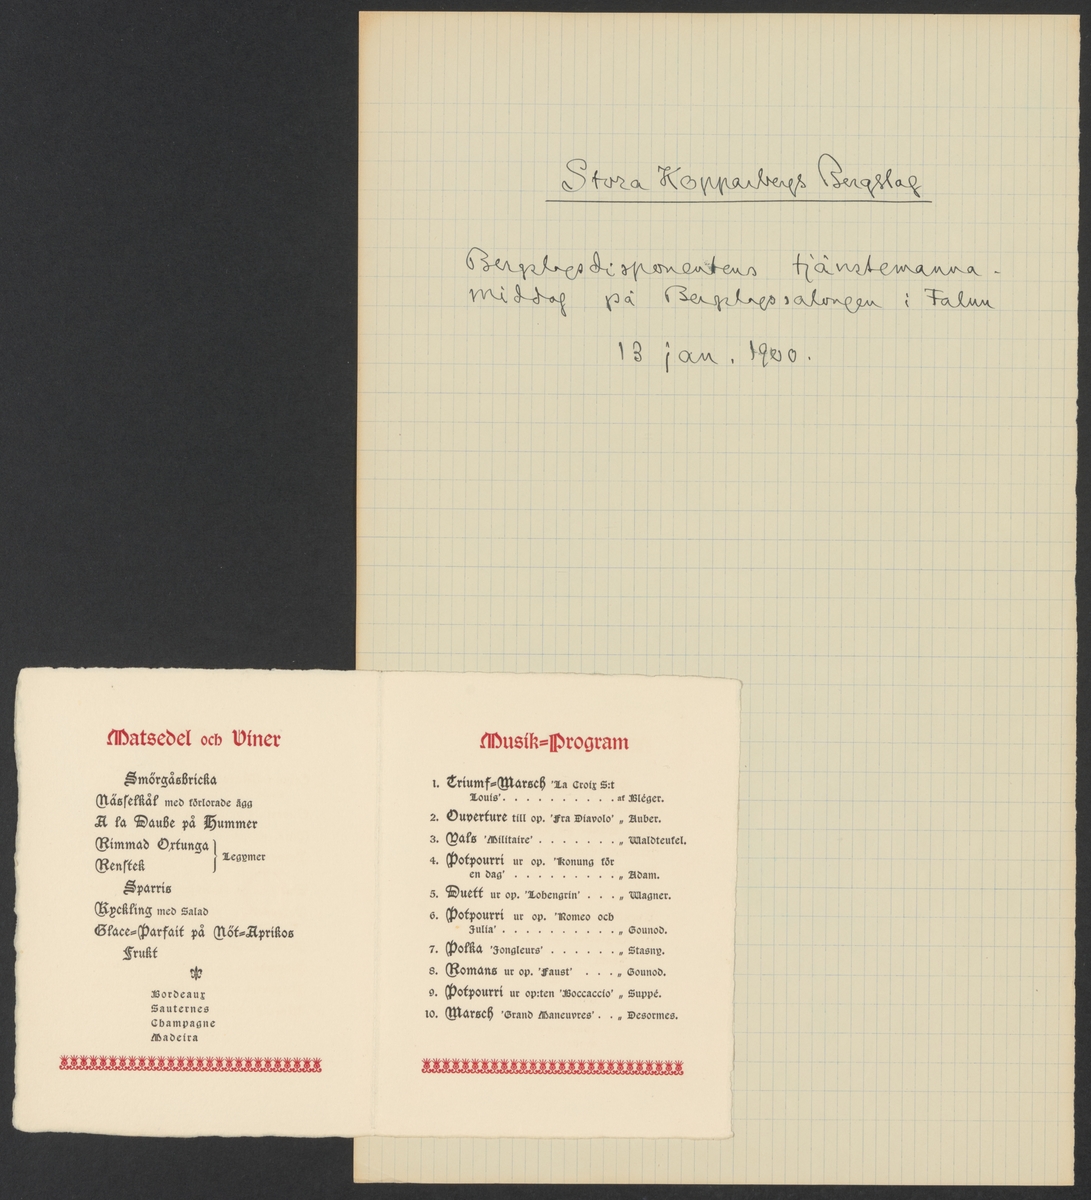 Stora Kopparbergs Bergslag
Bergslagsdisponentens tjänstemanna-
middag på Bergslagssalongen i Falun
13 jan. 1900.
Matsedel och Viner
Smörgåsbricka
Nässelkål med förlorade ägg
A la Daube på Hummer
Rimmad Oxtunga
Renstek
Legymer
Sparris
Kyckling med Salad
Glace-Parfait på Nöt-Aprikos
Frukt
Bordeaux
Sauternes
Champagne
Madeira
Musik-Program
1. Triumf-Marsch 'La Croix S:t
Louis' . . . . . . . . . . af Bléger.
2. Ouverture till op. 'Fra Diavolo' „ Auber.
3. Vals 'Militaire' . . . . . . . „ Waldteufel.
4. Potpourri ur op. 'Konung för
en dag' . . . . . . . . . „ Adam.
5. Duett ur op. 'Lohengrin' . . . „ Wagner.
6. Potpourri ur op. 'Romeo och
Julia' . . . . . . . . . . „ Gounod.
7. Polka 'Jongleurs' . . . . . . „ Stasny.
8. Romans ur op. 'Faust' . . . „ Gounod.
9. Potpourri ur op:ten 'Boccaccio' „ Suppé.
10. Marsch 'Grand Maneuvres' . . „ Desormes.